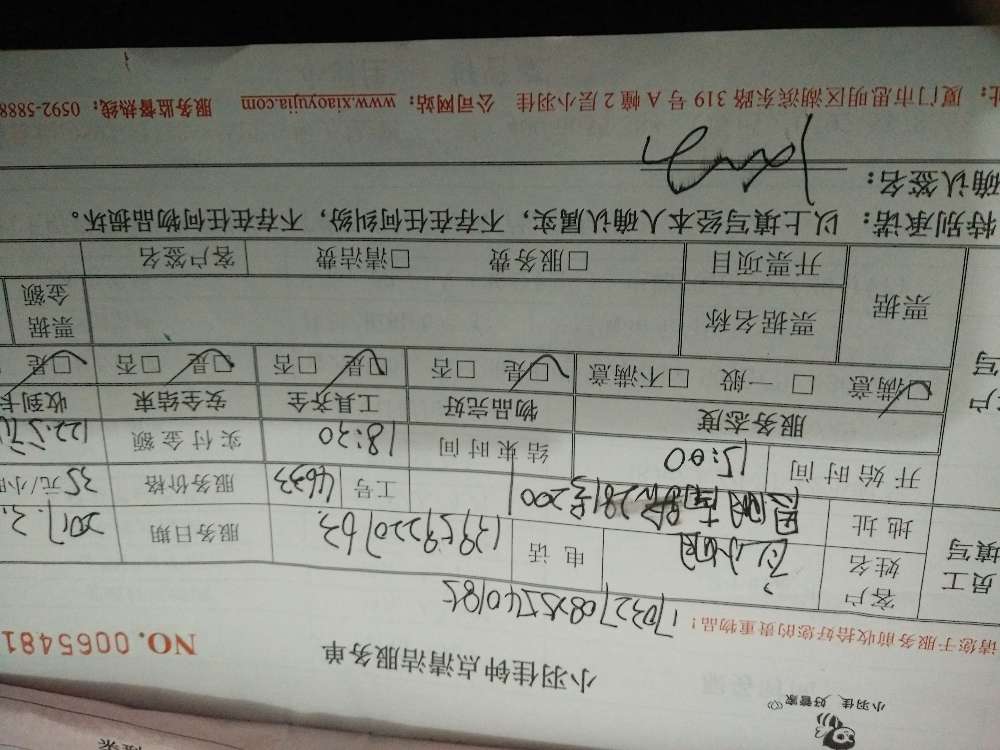 小羽佳 好管家
小羽佳钟点清洁服务单
NO. 0065481
请您于服务前收拾好您的贵重物品！
1703270825540185
员工填写
客户姓名
电话 13959220763
服务日期 2017.3.
地址
工号 4633
服务价格 35元/小时
开始时间 15:00
结束时间 18:30
实付金额 122.5元
服务态度 物品完好 工具齐全 安全结束 收到卡
满意 □一般 □不满意 是 □否 是 □否 是 □否 是
客户填写
票据 票据名称 票据金额
开票项目 □服务费 □清洁费 客户签名
特别承诺：以上填写经本人确认属实，不存在任何纠纷，不存在任何物品损坏。
确认签名：
址：厦门市思明区湖滨东路 319 号 A 幢 2 层小羽佳 公司网站：www.xiaoyujia.com 服务监督热线：0592-5888